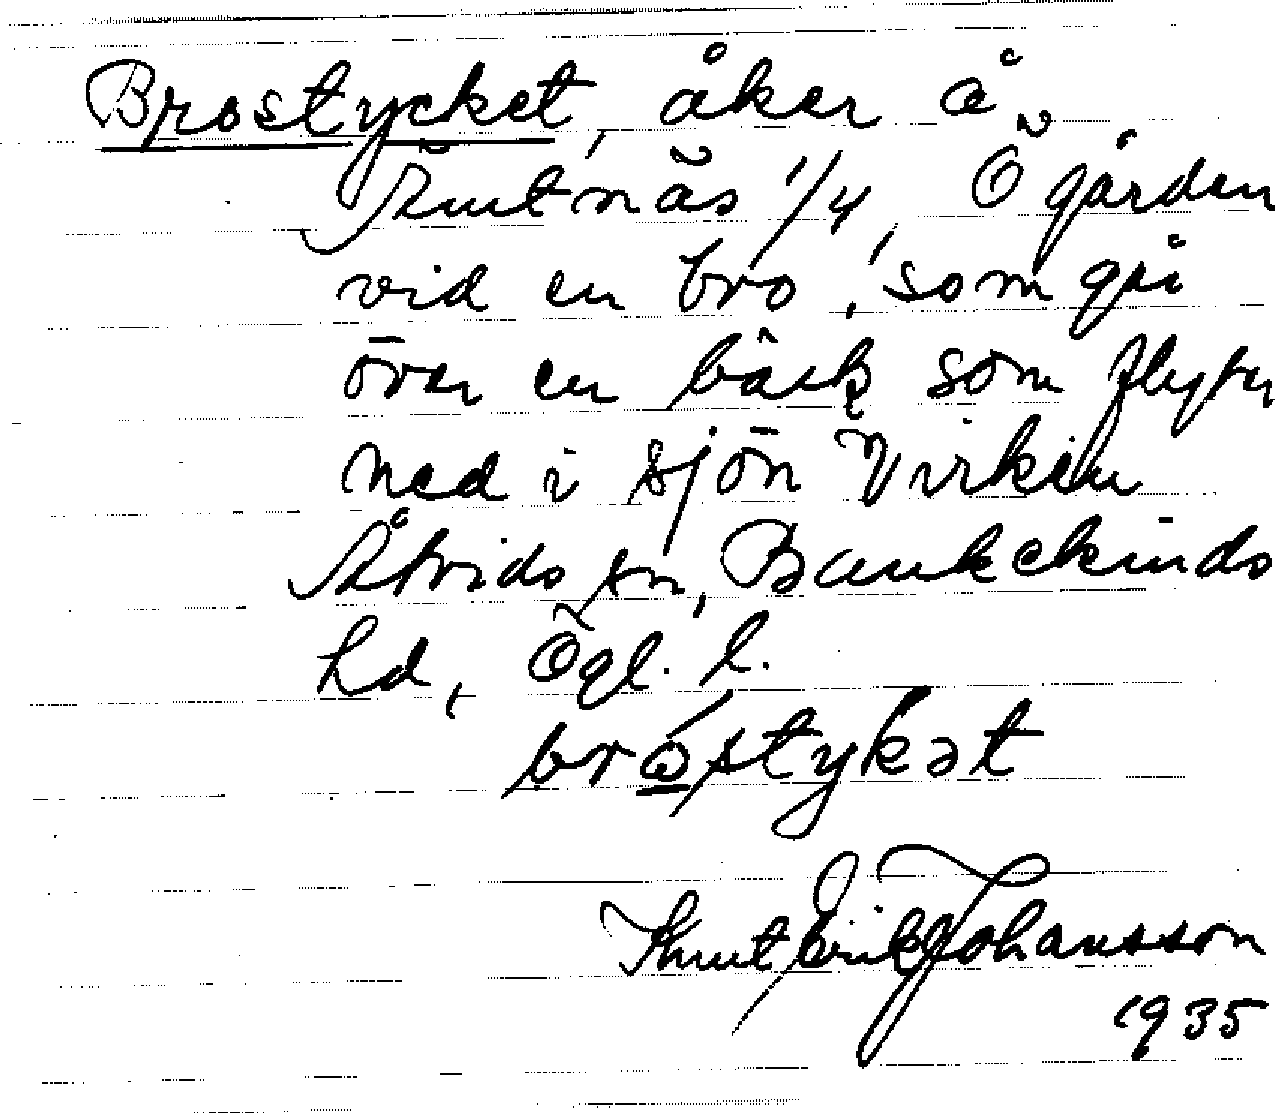 Brostycket, åker å
Knutnäs 1/4, Ö gården
vid en bro, som går
över en bäck som flyter
ned i sjön Virken
Åtvids sn, Bankekinds
hd, Ögl. l.
brostykət
Knut Erik Johansson
1935